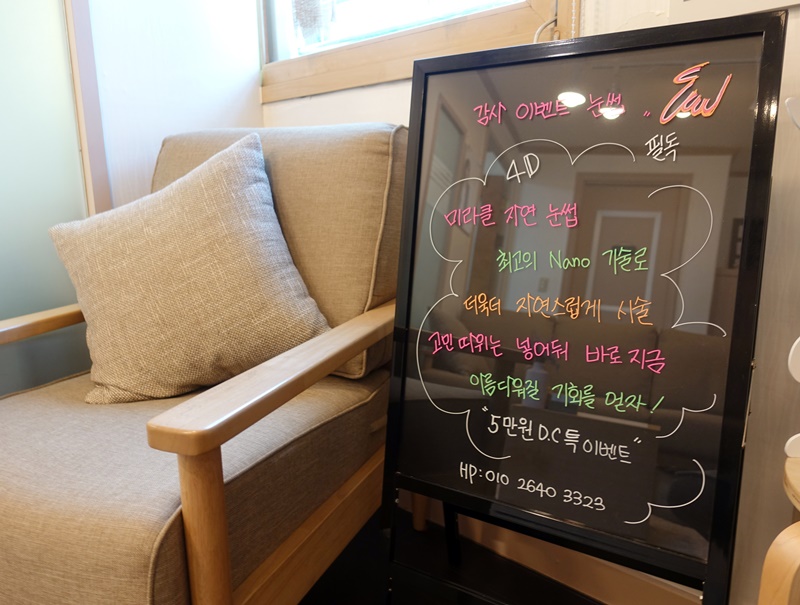 감사 이벤트 눈썹 "
필독
4D
미라클 자연 눈썹
최고의 Nano 기술로
더욱더 자연스럽게 시술
고민 따위는 넣어둬 바로 지금
아름다워질 기회를 얻자!
"5만원 D.C 특 이벤트"
HP: 010 2640 3323